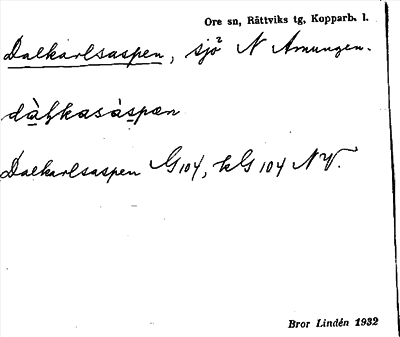 Ore sn, Rättviks tg, Kopparb. l.
Dalkarlsaspen, sjö N Amungen.
dàl̥kasàspæn
Dalkarlsaspen G 104, kG 104 NV.
Bror Lindén 1932